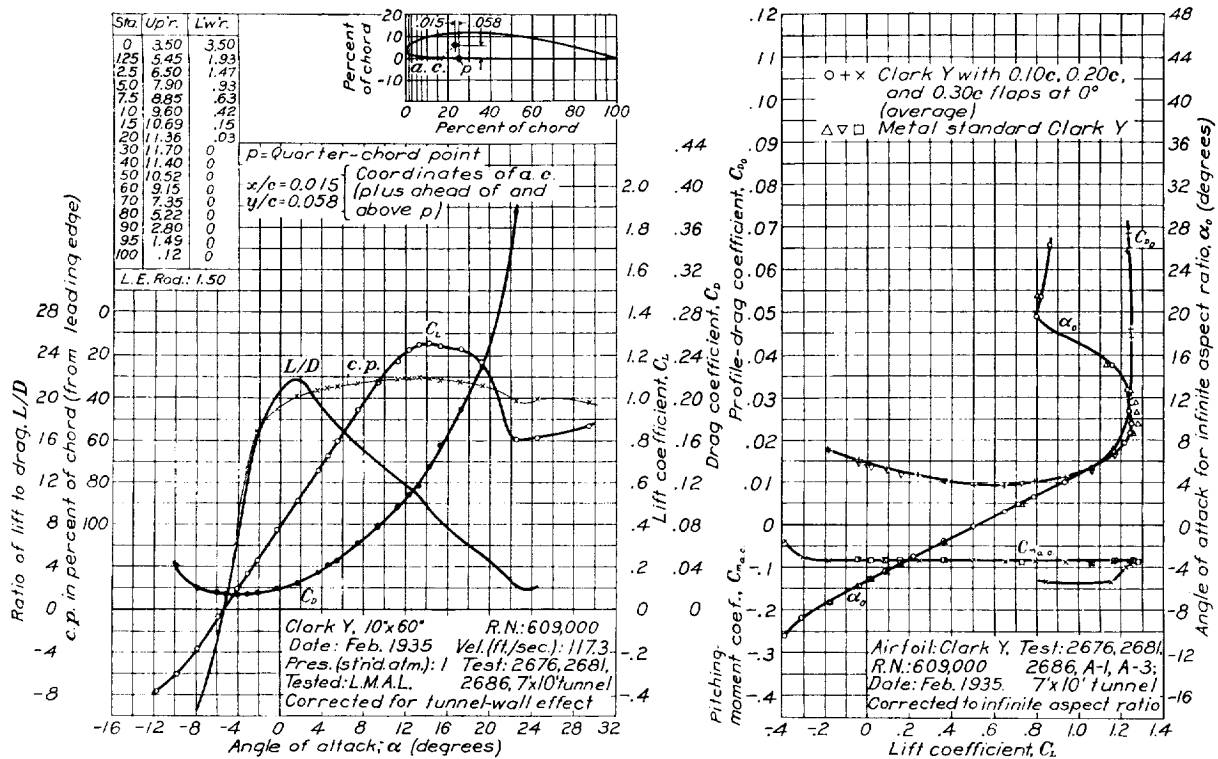 Sta. Up'r. L'w'r.
0 3.50 3.50
1.25 5.45 1.93
2.5 6.50 1.47
5.0 7.90 .93
7.5 8.85 .63
10 9.60 .42
15 10.69 .15
20 11.36 .03
30 11.70 0
40 11.40 0
50 10.52 0
60 9.15 0
70 7.35 0
80 5.22 0
90 2.80 0
95 1.49 0
100 .12 0
L.E. Rad.: 1.50
Percent of chord
20
10
0
-10
.015 .058
a.c. p
0 20 40 60 80 100
Percent of chord
p=Quarter-chord point
x/c=0.015
y/c=0.058
Coordinates of a.c.
(plus ahead of and
above p)
Ratio of lift to drag, L/D
28
24
20
16
12
8
4
0
-4
-8
c.p. in percent of chord (from leading edge)
0
20
40
60
80
100
L/D
c.p.
C_L
C_D
2.0
1.8
1.6
1.4
1.2
1.0
.8
.6
.4
.2
0
-.2
-.4
Lift coefficient, C_L
.44
.40
.36
.32
.28
.24
.20
.16
.12
.08
.04
0
Drag coefficient, C_D
Clark Y, 10"x60" R.N.:609,000
Date: Feb. 1935 Vel.(ft./sec.): 117.3
Pres.(st'n'd.atm.): 1 Test: 2676,2681,
Tested: L.M.A.L. 2686, 7'x10' tunnel
Corrected for tunnel-wall effect
-16 -12 -8 -4 0 4 8 12 16 20 24 28 32
Angle of attack, α (degrees)
Profile-drag coefficient, C_D0
.12
.11
.10
.09
.08
.07
.06
.05
.04
.03
.02
.01
0
Pitching-moment coef., C_m a.c.
-.1
-.2
-.3
-.4
o + x Clark Y with 0.10c, 0.20c,
and 0.30c flaps at 0°
(average)
△ ▽ □ Metal standard Clark Y
C_D0
α0
C_m a.c.
α0
48
44
40
36
32
28
24
20
16
12
8
4
0
-4
-8
-12
-16
Angle of attack for infinite aspect ratio, α0 (degrees)
Airfoil: Clark Y. Test: 2676,2681,
R.N.:609,000 2686, A-1, A-3;
Date: Feb. 1935. 7'x10' tunnel
Corrected to infinite aspect ratio
-.4 -.2 0 .2 .4 .6 .8 1.0 1.2 1.4
Lift coefficient, C_L